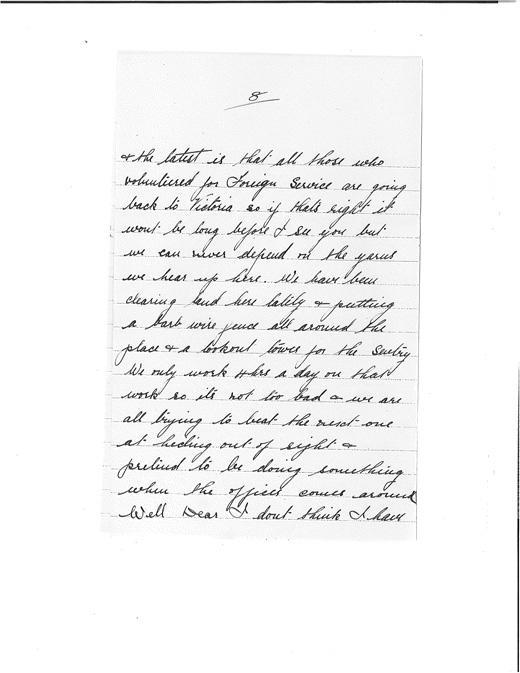 8
& the latest is that all those who
voluntiered for Foreign Service are going
back to Victoria so if thats right it
wont be long before I see you but
we can never depend on the yarns
we hear up here. We have been
clearing land here lately & putting
a barb wire fence all around the
place & a lookout tower for the Sentry
We only work 4 hrs a day on that
work so its not too bad & we are
all trying to beat the next one
at hiding out of sight &
pretend to be doing something
when the officer comes around
Well Dear I dont think I have